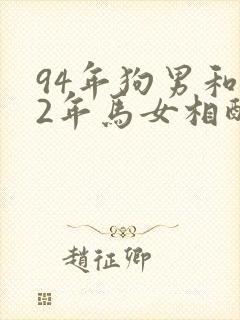 94年狗男和
2年馬女相
趙征卿